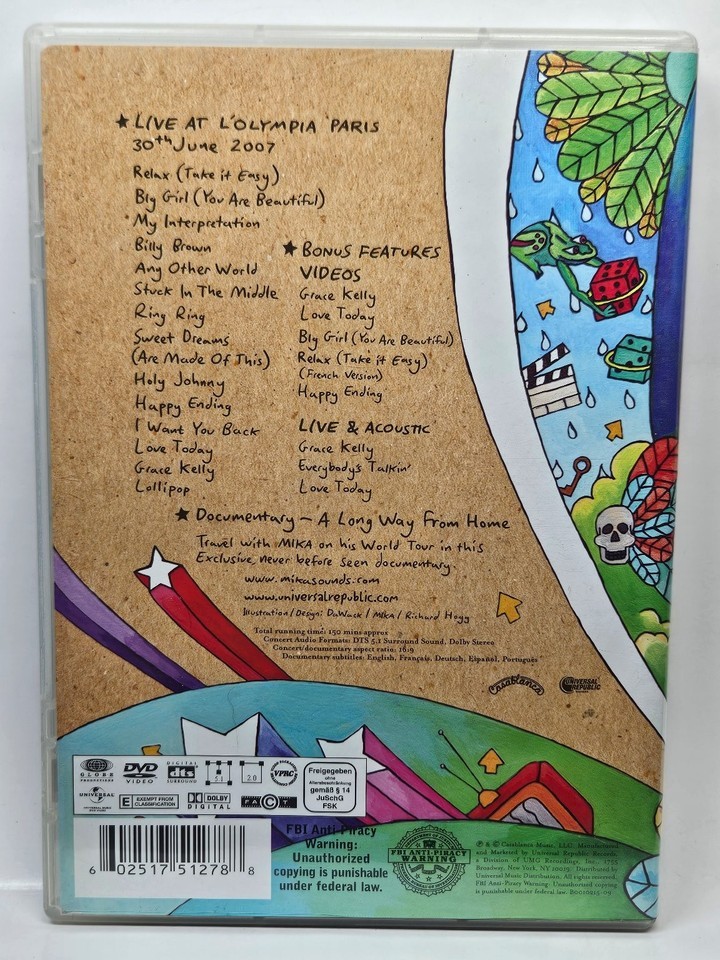 ★ LIVE AT L'OLYMPIA PARIS
30th June 2007
Relax (Take it Easy)
Big Girl (You Are Beautiful)
My Interpretation
Billy Brown
Any Other World
Stuck In The Middle
Ring Ring
Sweet Dreams
(Are Made Of This)
Holy Johnny
Happy Ending
I Want You Back
Love Today
Grace Kelly
Lollipop
★ BONUS FEATURES
VIDEOS
Grace Kelly
Love Today
Big Girl (You Are Beautiful)
Relax (Take it Easy)
(French Version)
Happy Ending
LIVE & ACOUSTIC
Grace Kelly
Everybody's Talkin'
Love Today
★ Documentary – A Long Way From Home
Travel with MIKA on his World Tour in this
Exclusive, never before seen documentary.
www.mikasounds.com
www.universalrepublic.com
Illustration/Design: DaWack / MIKA / Richard Hogg
Total running time: 150 mins approx
Concert Audio Formats: DTS 5.1 Surround Sound, Dolby Stereo
Concert/documentary aspect ratio: 16:9
Documentary subtitles: English, Français, Deutsch, Español, Português
Casablanca
UNIVERSAL
REPUBLIC
GLOBE
PRODUCTIONS
DVD
VIDEO
DIGITAL
dts
SURROUND
5.1
2.0
VPRC
Freigegeben
ohne
Altersbeschränkung
gemäß § 14
JuSchG
FSK
UNIVERSAL
E EXEMPT FROM
CLASSIFICATION
DOLBY
DIGITAL
FACT
6 02517 51278 8
FBI Anti-Piracy
Warning:
Unauthorized
copying is punishable
under federal law.
FBI ANTI-PIRACY
WARNING
℗ & © Casablanca Music, LLC. Manufactured
and Marketed by Universal Republic Records,
a Division of UMG Recordings, Inc., 1755
Broadway, New York, NY 10019. Distributed by
Universal Music Distribution. All rights reserved.
FBI Anti-Piracy Warning: Unauthorized copying
is punishable under federal law.